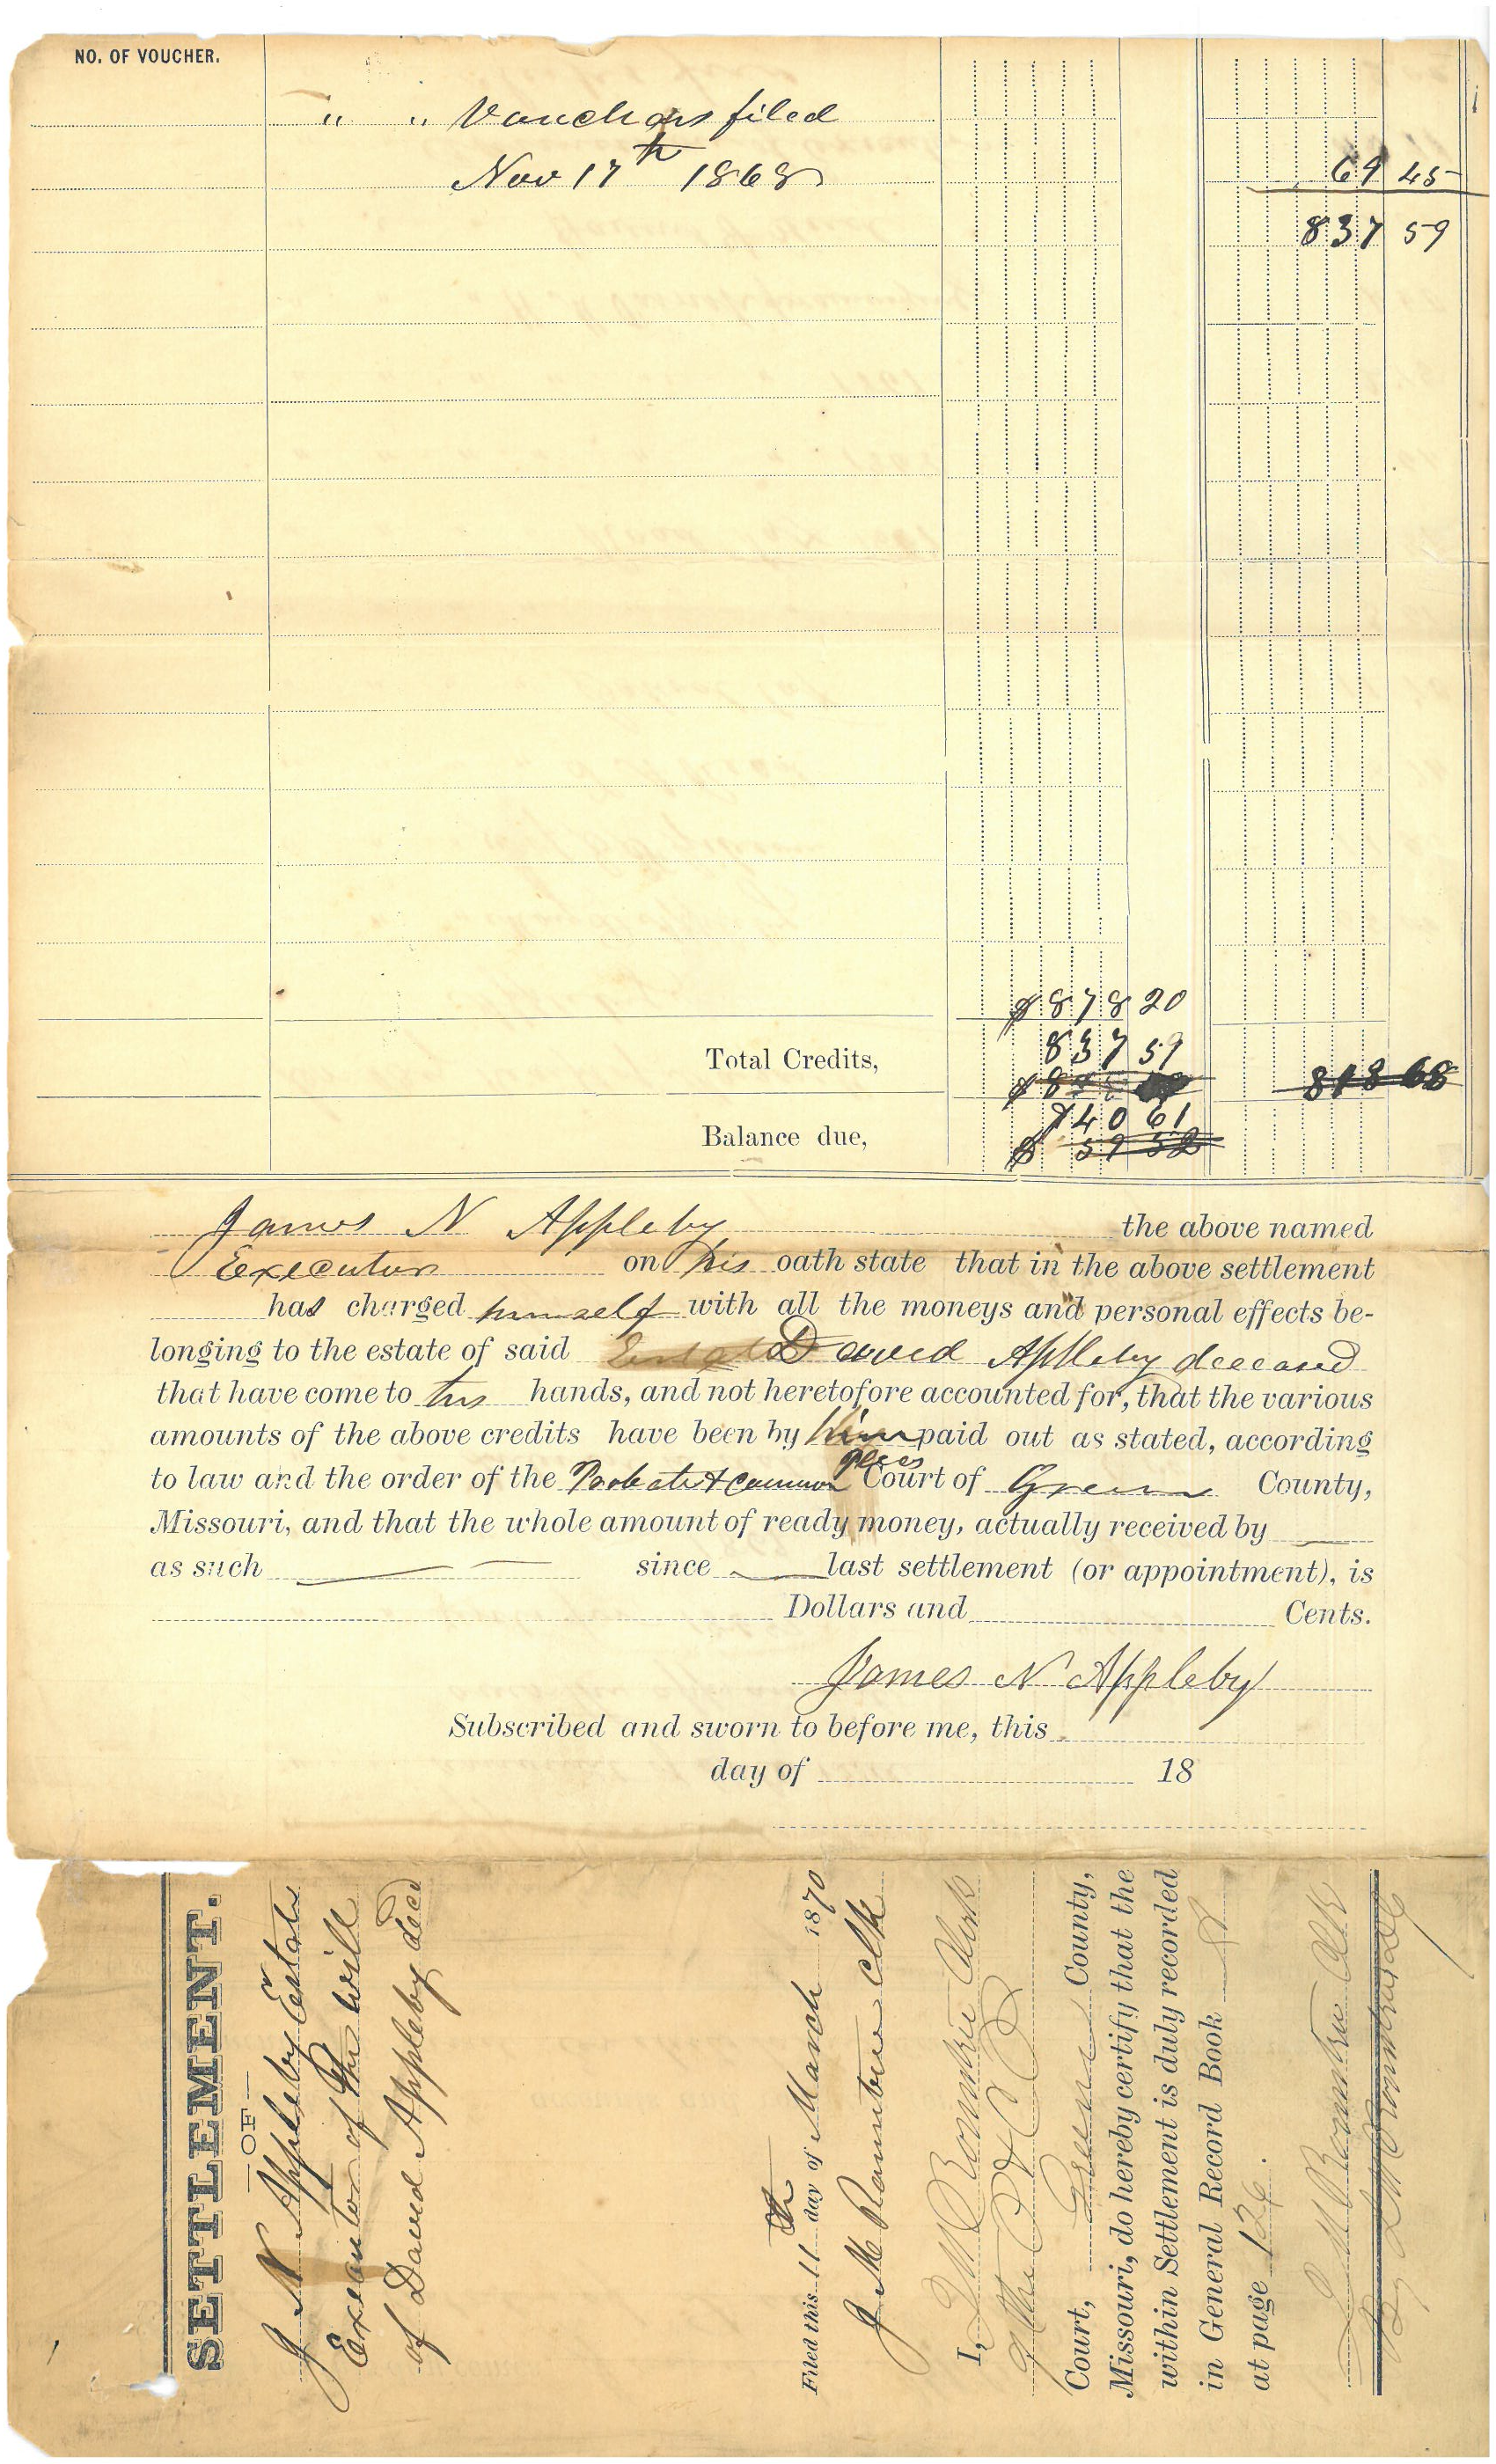 NO. OF VOUCHER.
" " Vouchers filed
Nov 17th 1868 69 45
837 59
$878 20
Total Credits, 837 59
818 68
Balance due, 740 61
$ 59 52
James N Appleby the above named
Executor on his oath state that in the above settlement
has charged himself with all the moneys and personal effects be-
longing to the estate of said David Appleby deceased
that have come to his hands, and not heretofore accounted for, that the various
amounts of the above credits have been by him paid out as stated, according
to law and the order of the Probate & common pleas Court of Green County,
Missouri, and that the whole amount of ready money, actually received by
as such since last settlement (or appointment), is
Dollars and Cents.
James N Appleby
Subscribed and sworn to before me, this
day of 18
SETTLEMENT.
— OF —
J N Appleby Exr Estate
Executor of the will
of David Appleby decd
Filed this 11th day of March 1870
J M Rountree Clk
I, J M Rountree Clerk
of the P & C P
Court, Greene County,
Missouri, do hereby certify that the
within Settlement is duly recorded
in General Record Book A
at page 126.
J M Rountree Clk
By